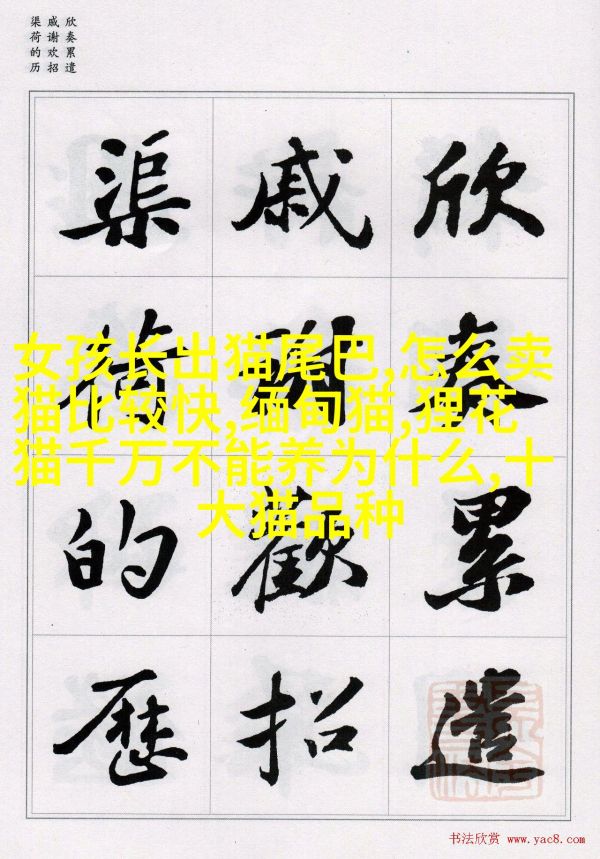 欣奏累遣
戚谢欢招
渠荷的历
欣奏累遣
戚謝歡招
渠荷的歷
女孩长出猫尾巴,怎么卖
猫比较快,缅甸猫,狸花
猫千万不能养为什么,十
大猫品种
书法欣赏 www.yac8.com